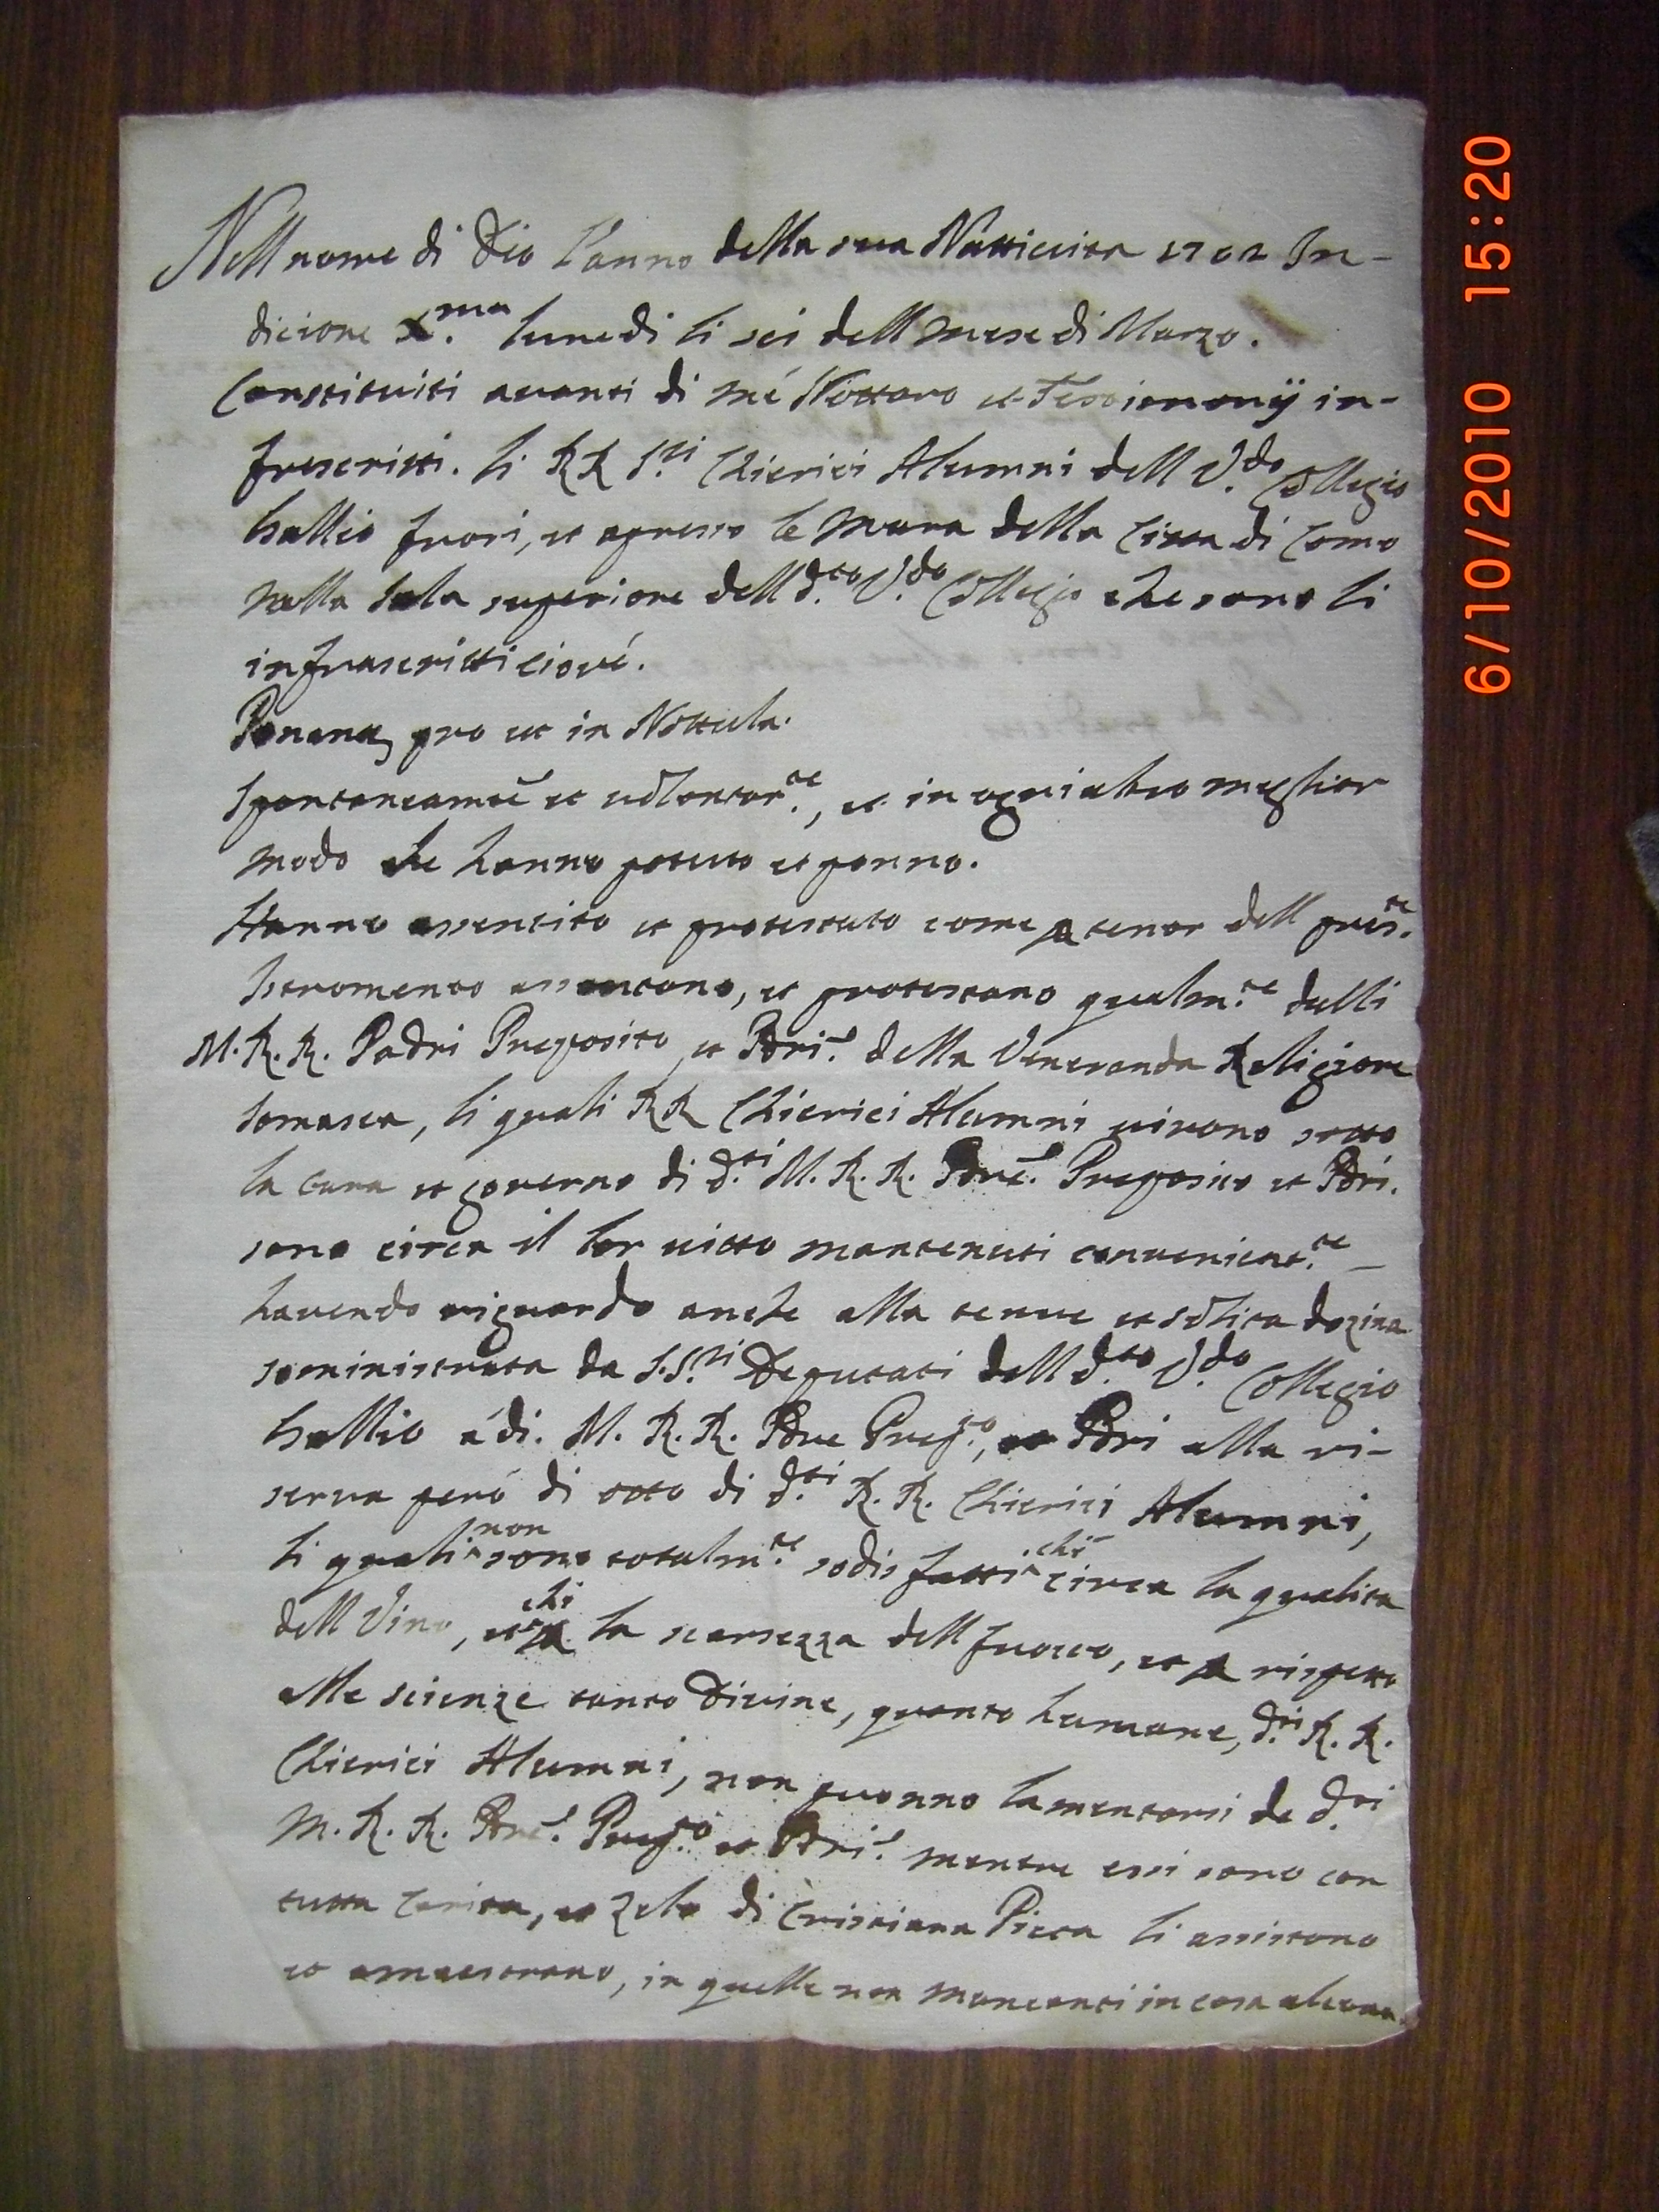 Nell nome di Dio l'anno della sua Nattività 1702 In-
dicione X.ma lunedi li sei dell mese di Marzo.
Constituiti avanti di mé Nottaro et Testimonij in-
frascritti. li RR S.ri Chierici Alumni dell V.do Collegio
Gallio fuori, et apresso le mura della Citta di Como
nella Sala superiore dell d.to V.do Collegio che sono li
infrascritti cioué.
Ponant pro ut in Nottula.
Spontaneamte et volontar.te, et in ogni altro meglior
modo che hanno potuto et ponno.
Hanno assentito et protestato come a tenor dell pres.te
Istromento assentono, et protestano qualm.te dalli
M. R. R. Padri Preposito, et Pdri. della Veneranda Religione
Somasca, li quali RR Chierici Alumni vivono sotto
la cura et governo di d.ti M. R. R. Pdre. Preposito et Pdri.
sono circa il lor vitto mantenuti convenient.te
havendo riguardo anche alla tenue et solita dozina
soministrata da S.S.ri Deputati dell d.to V.do Collegio
Gallio á di. M. R. R. Pdre Prep.to, et Pdri alla ri-
serva peró di otto di d.ti R. R. Chierici Alumni,
li quali non sono totalm.te sodisfatti chi circa la qualita
dell Vino, et chi la scarsezza dell fuoco, et a rispetto
alle scienze tanto Divine, quanto humane, d.ti R. R.
Chierici Alumni, non puonno lamentarsi de d.ti
M. R. R. Pdre. Prep.to et Pdri. mentre essi sono con
tutta Carita, et Zelo di Cristiana Pieta li assistono
et amaestrano, in quelle non mancanti in cosa alcuna.
6/10/2010 15:20